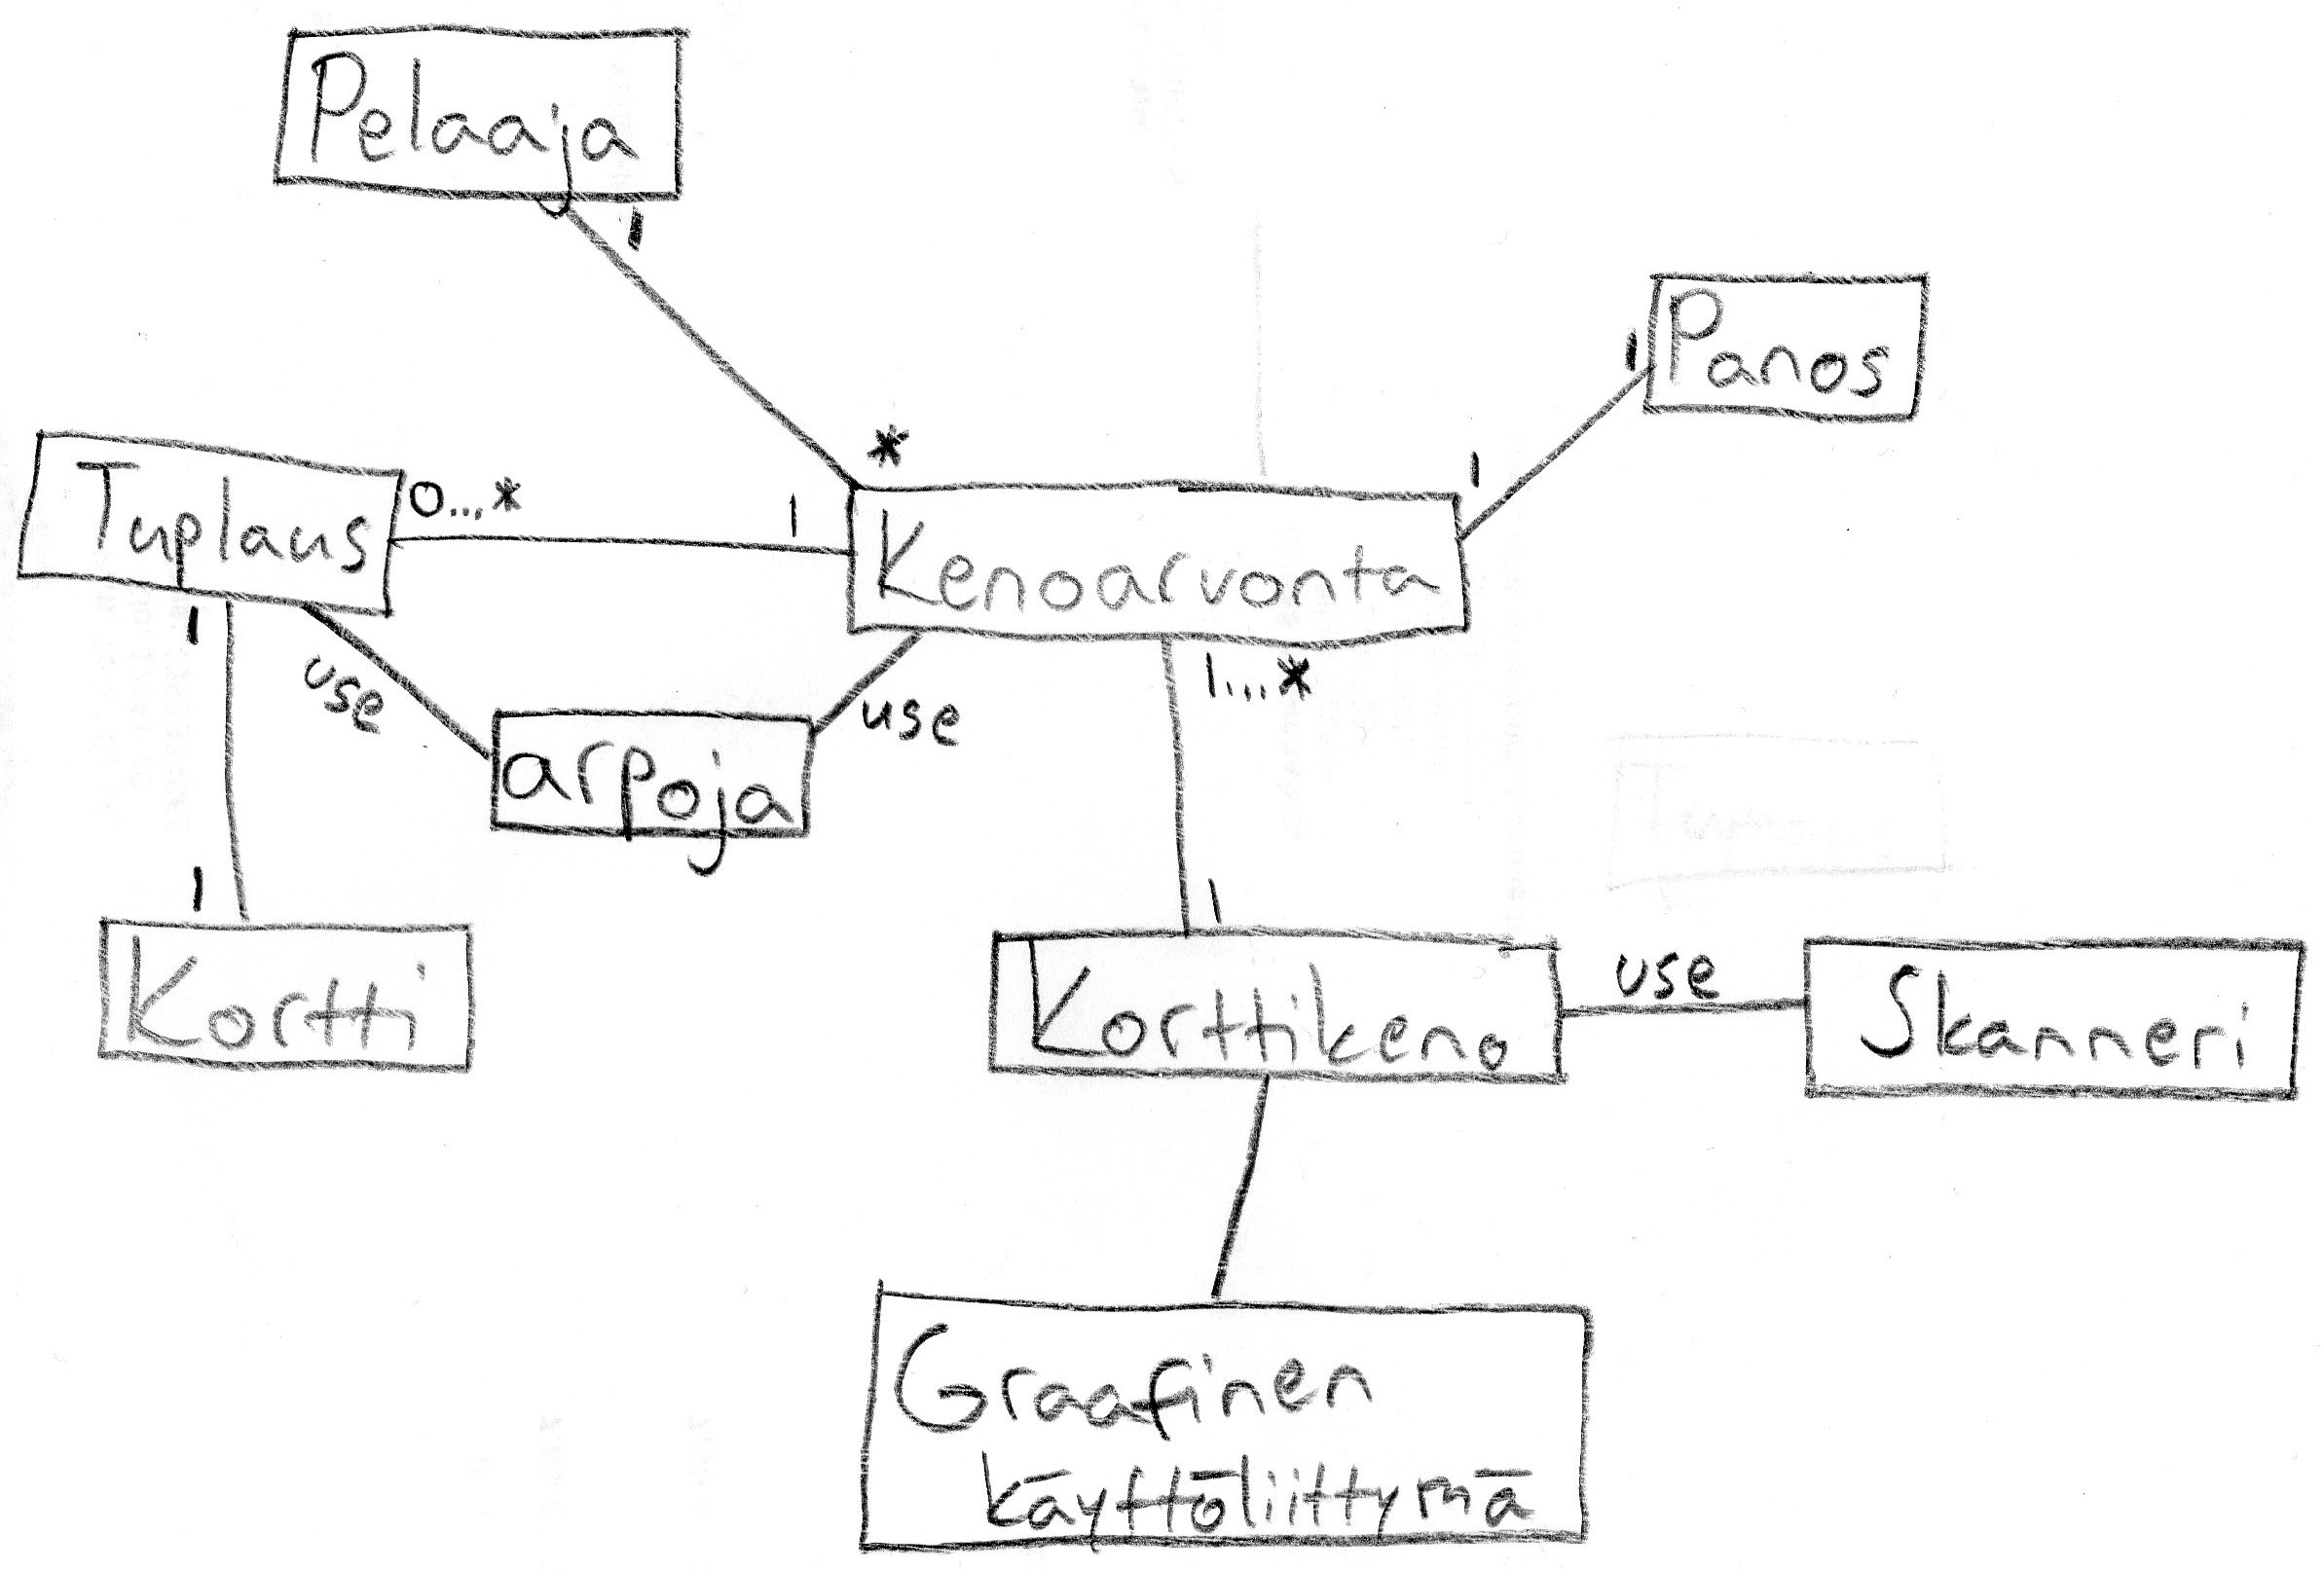 Pelaaja
1
Panos
1
*
1
Tuplaus
0...*
1
Kenoarvonta
1
use
use
1...*
arpoja
1
1
Kortti
Korttikeno
use
Skanneri
Graafinen
käyttöliittymä